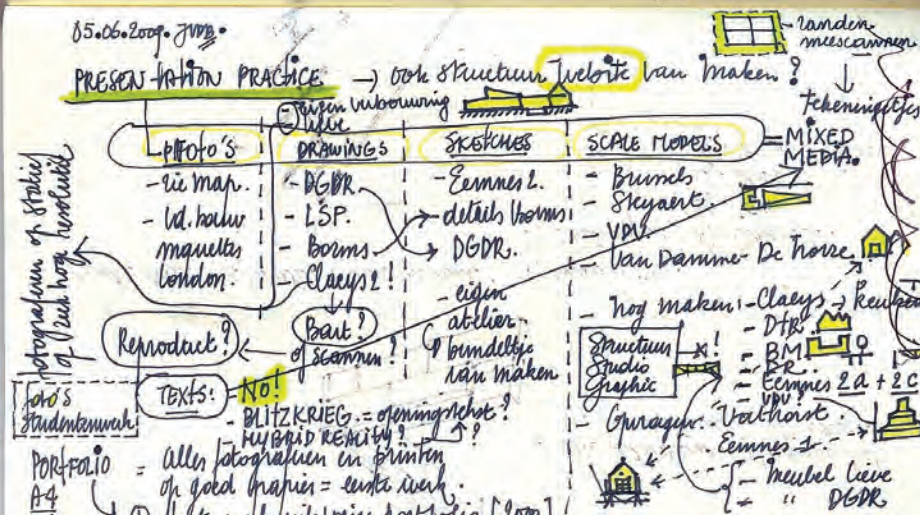 05.06.2009.
PRESENTATION PRACTICE → ook structuur website van maken?
- randen meescannen
tekeningetjes
- eigen verbouwing lieve
- PHOTO'S
DRAWINGS
SKETCHES
SCALE MODELS
= MIXED MEDIA.
- zie map.
- maquettes London.
- DGDR
- LSP.
- Borms
- Claeys 2!
- Eemnes 2.
- details Borms
DGDR.
- eigen atelier
bundeltje van maken
- Brussels
- Skyaert.
- VDV.
- Van Damme - De Vorre.
- nog maken: - Claeys → keuken
- DTR.
- BM
- BR.
- Eemnes 2a + 2c
- VDV?
- Garages: Voilhorst.
Eemnes 1.
- meubel lieve
- " DGDR
fotograferen op statief of zeer hoge resolutie
Reproduct?
Bart? of scannen?
Structuur Studio Graphic
- X!
foto's studentenwerk
TEXTS:
- NO!
- BLITZKRIEG. = openingstekst?
- HYBRID REALITY? ?
PORTFOLIO A4
= alles fotograferen en printen
op goed papier = eerste werk.
portfolio [2000]